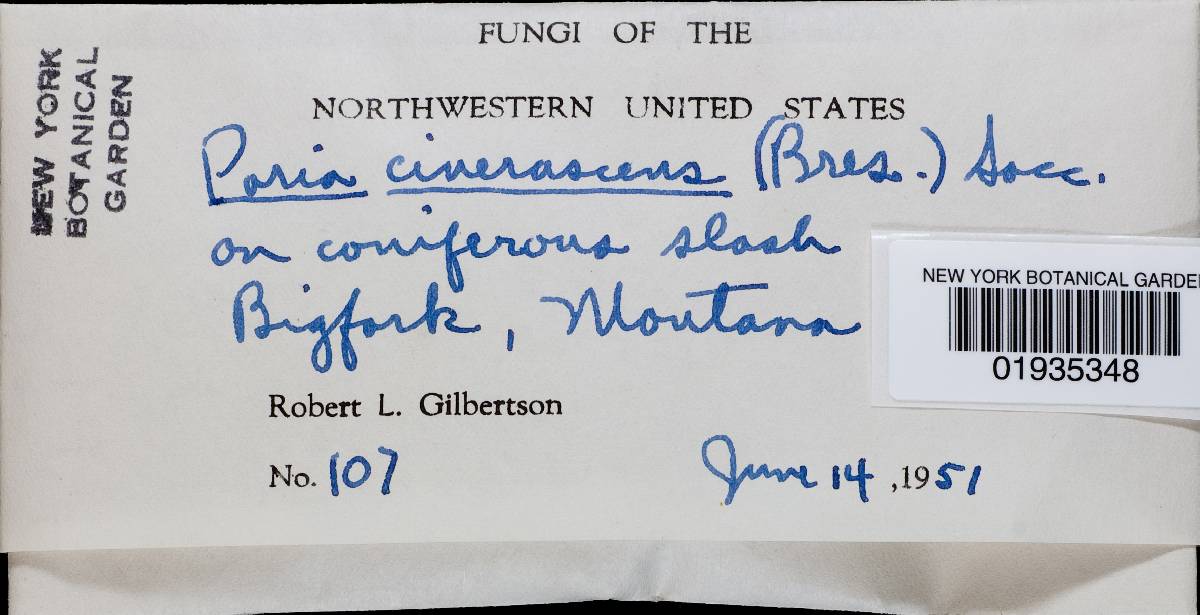 FUNGI OF THE
NORTHWESTERN UNITED STATES
Poria cinerascens (Bres.) Sacc.
on coniferous slash
Bigfork, Montana
Robert L. Gilbertson
No. 107 June 14, 1951
NEW YORK
BOTANICAL
GARDEN
NEW YORK BOTANICAL GARDEN
01935348